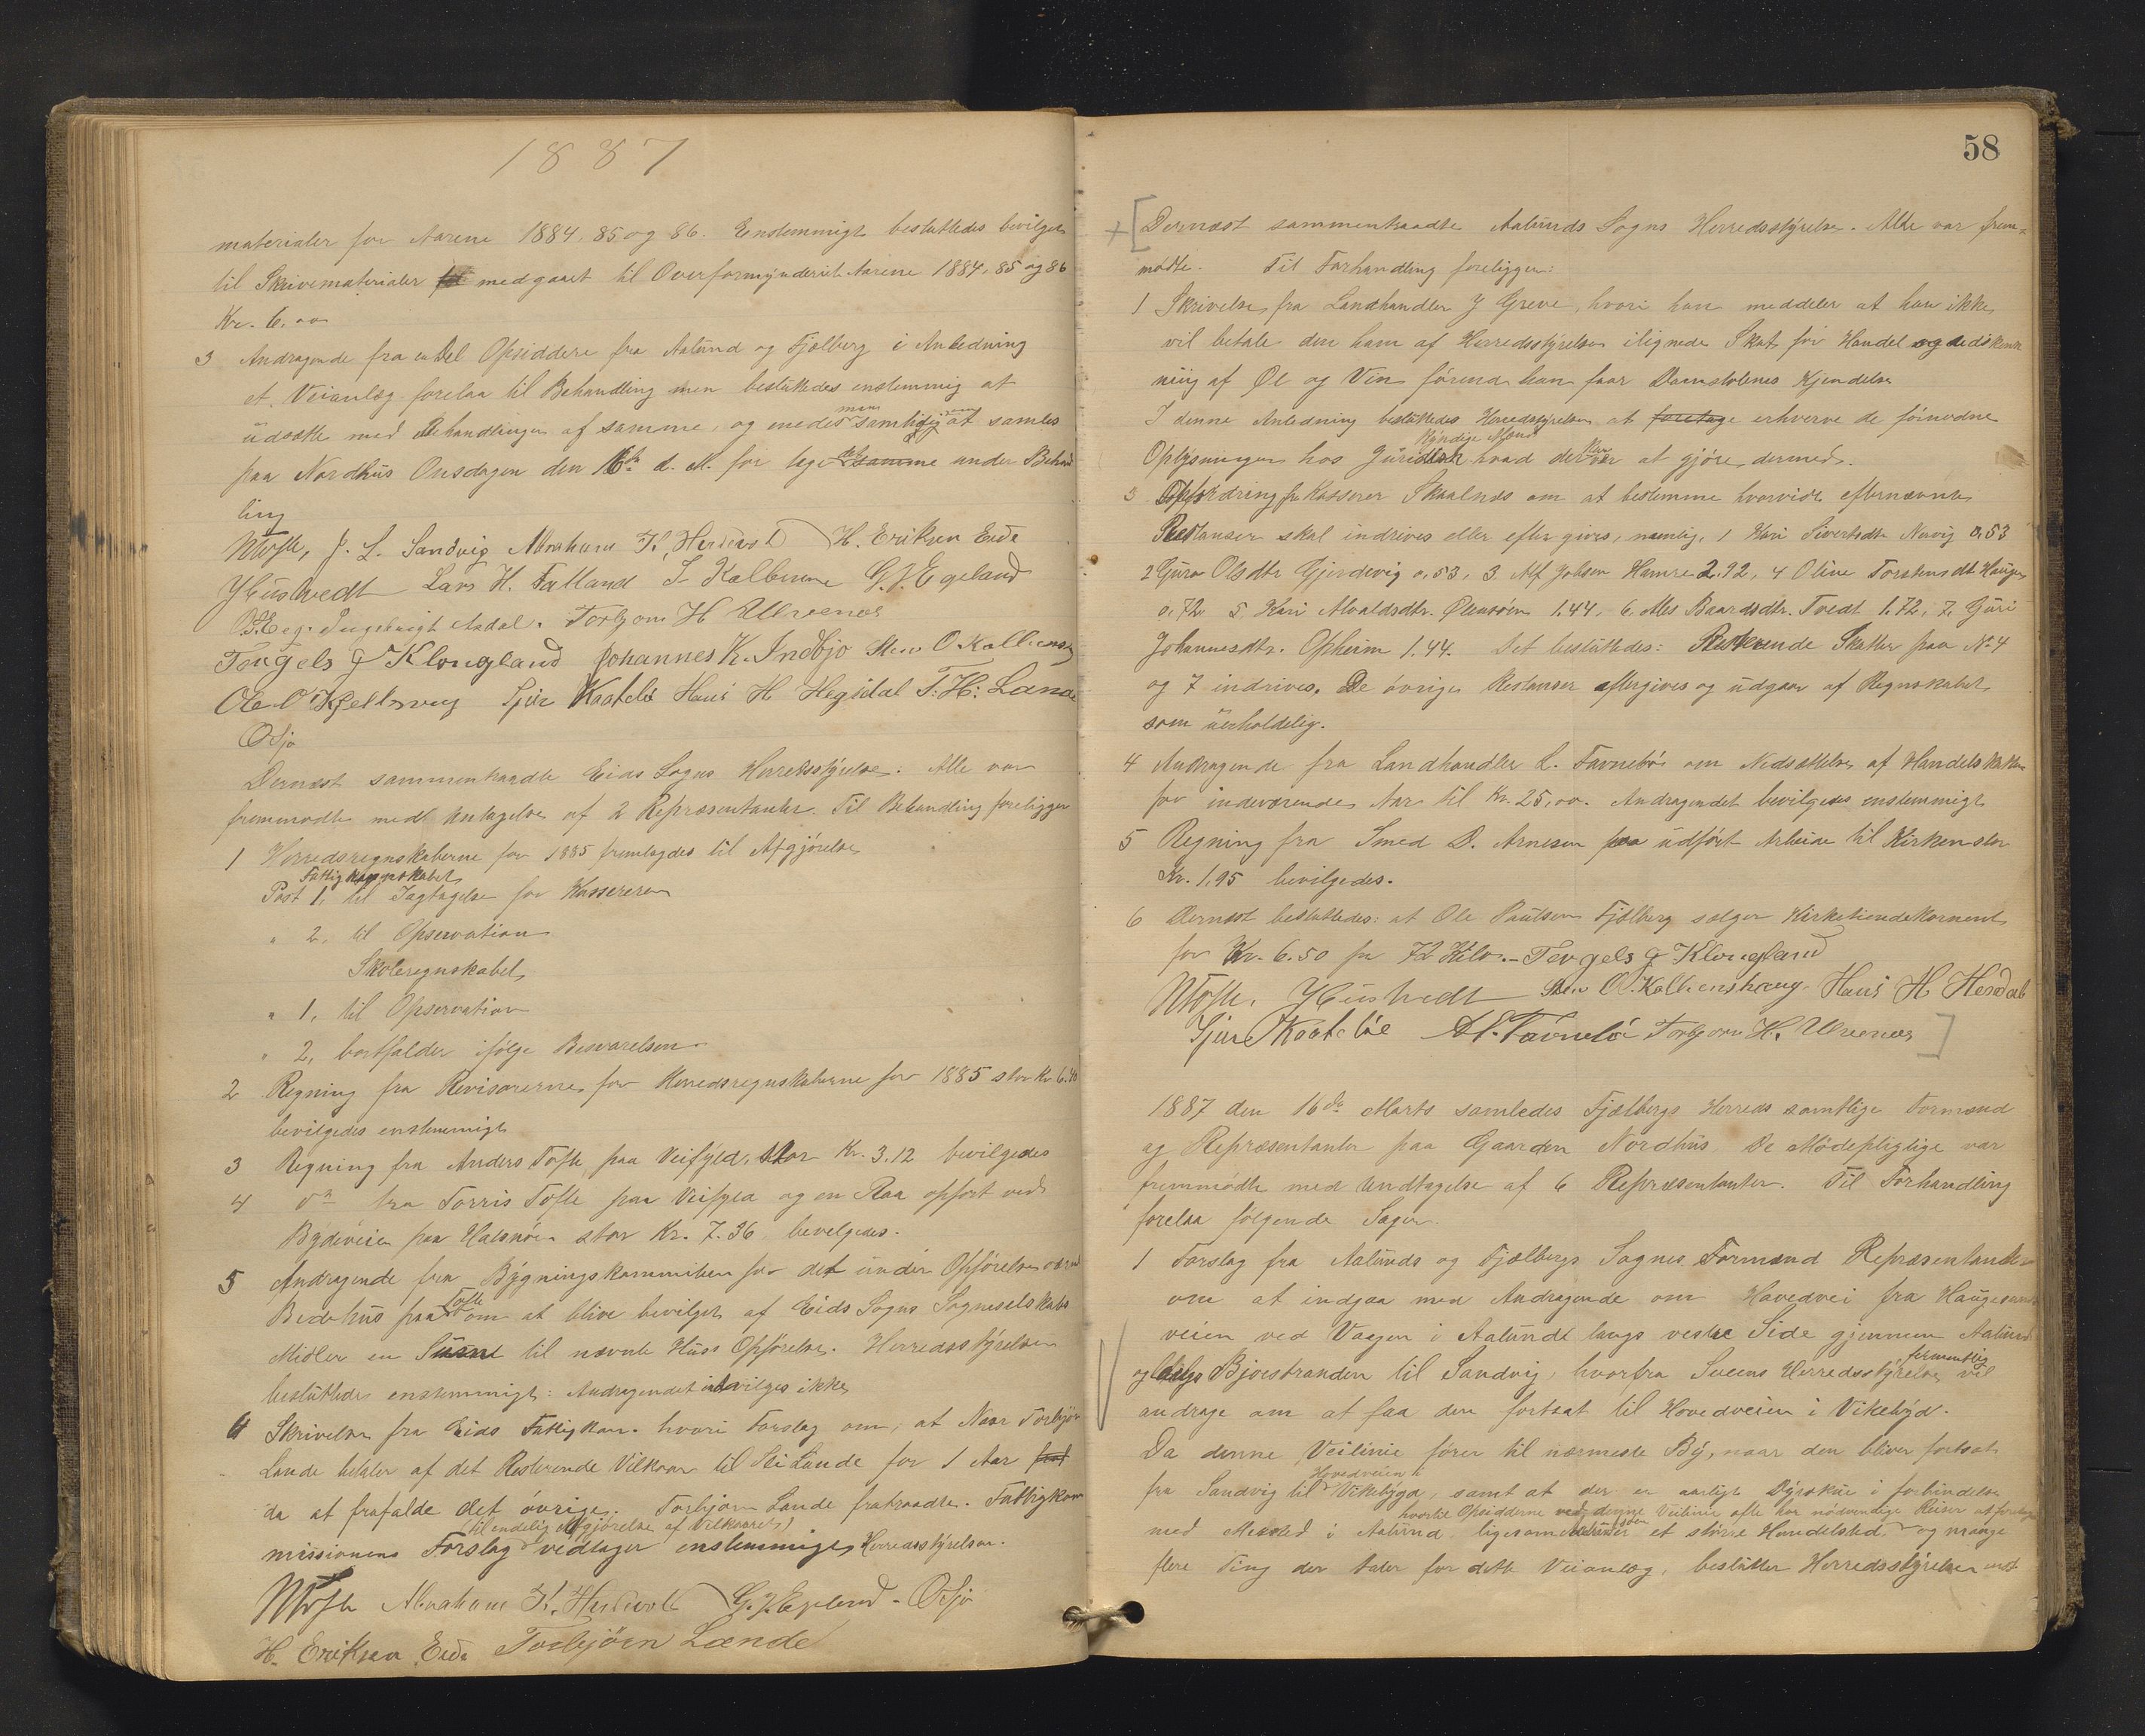 1887
materialer for Aarene 1884, 85 og 86. Enstemmigt besluttedes bevilget
til Skrivematerialer medgaaet til Overformynderiet Aarene 1884, 85 og 86
Kr. 6,00
3 Andragende fra en Del Opsiddere fra Aalund og Fjelberg i Anledning
et Veianlæg forelaa til Behandling men besluttedes enstemmig at
udsætte med Behandlingen af samme, og enedes man samtidig om at samles
paa Nordhus Onsdagen den 16de d. M. for tage det under Behand
ling
J. L. Sandvig Abraham K. H. Eriksen Eide
J Hustvedt Lars H. Tatland G. J. Egeland
Ingebrigt Aadal. Torbjørn H Ulvenes
Tengels J Klougland Johannes K. Indbjo Sten O Kallevaag
Ole O Kjellesvig Sjur Hans H T. H. Lande
O Sjo
Dernæst sammentraadte Eids Sogns Herredsstyrelse. Alle var
fremmødte medt Untagelse af 2 Repræsentanter. Til Behandling foreligger
1 Herredsregnskaberne for 1885 fremlagdes til Afgjørelse
Fattigregnskabet
Post 1, til Iagtagelse for Kassereren
" 2, til Opservation
Skoleregnskabet
" 1, til Opservation
" 2, bortfalder ifølge Besvarelsen
2 Regning fra Revisorerne for Herredsregnskaberne for 1885 stor Kr 6.40
bevilgedes enstemmigt
3 Regning fra Anders Tofte paa Veifyld, stor Kr. 3.12 bevilgedes
4 do fra Torris Tofte paa Veifyld og en Raa opført ved
Bydeveien paa Halsnøen stor Kr. 7.36 bevilgedes.
5 Andragende fra Bygningskommiteen for det under Opførelse værende
Bedehus paa Tofte om at blive bevilget af Eids Sogns Sogneselskabs
Midler en Sum til nævnte Huss Opførelse. Herredsstyrelsen
besluttedes enstemmigt: Andragendet indvilges ikke
6 Skrivelse fra Eids Fattigkom. hvori Forslag om, at Naar Torbjørn
Lande betaler af det Resterende Vilkaar til Siri Lande for 1 Aar
da at frafalde det øvrige. Torbjørn Lande fratraadte. Fattigkom
(til endelig Afgjørelse af Vilkaaret)
missionens Forslag vedtager enstemmigt Herredsstyrelsen.
Abraham K. G. J. Egeland - O Sjo
H. Eriksen Eide Torbjörn Lande
58
Dernæst sammentraadte Aalunds Sogns Herredsstyrelse. Alle var frem-
mødte. Til Forhandling foreligger:
1 Skrivelse fra Landhandler J Greve, hvori han meddeler at han ikke
vil betale den ham af Herredsstyrelsen ilignede Skat for Handel og Udskjænk
ning af Øl og Vin førend han faar Domstolenes Kjendelse
I denne Anledning besluttedes Herredsstyrelsen at foretage erhverve de fornødne
Oplysninger hos Juridisk kyndige Mænd hvad der kan være at gjøre dermed.
3 Opfordring fra Kasserer Skaalnes om at bestemme hvorvidt efternævnte
Restanser skal indrives eller efter gives, nemlig, 1 Kari Sivertsdtr Nervig 0,53
2 Guro Olsdtr Gjerdevig 0.53, 3. Alf Jobsen Hamre 2.92, 4 Oline Torstensdt Haugen
0.72 5. Kari Alvaldsdtr. Ølensøen 1.44, 6. Ales Baardsdtr. Tvedt 1.72, 7. Guri
Johannesdtr. Opheim 1.44. Det besluttedes: Resterende Skatter paa No 4
og 7 indrives. De øvrige Restanser eftergives og udgaar af Regnskabet
som uerholdelig.
4 Andragende fra Landhandler L. Tavnebøe om Nedsættelse af Handelsskatten
for indeværende Aar til Kr. 25,00. Andragendet bevilgedes enstemmigt
5 Regning fra Smed D. Arnesen paa udført Arbeide til Kirken stor
Kr. 1.95 bevilgedes.
6 Dernæst besluttedes: at Ole Paulsen Fjelberg sælger Kirketiendekornent
for Kr. 6.50 pr 72 Kilo. - Tengels J Klougland
J Hustvedt Sten O. Kallevaag Hans H
Sjur Torbjørn H. Ulvenes
1887 den 16de Marts samledes Fjelbergs Herreds samtlige Formænd
og Repræsentanter paa Gaarden Nordhus. De Mødepligtige var
fremmødte med Undtagelse af 6 Repræsentanter. Til Forhandling
forelaa følgende Sager.
1 Forslag fra Aalunds og Fjelbergs Sognes Formænd Repræsentanter
om at indgaa med Andragende om Hovedvei fra Haugesunds
veien ved Vaagen i Aalund langs vestre Side gjennem Aalund
og langs Bjoestranden til Sandvig, hvorfra Sveens Herredsstyrelse formentlig vil
andrage om at faa den fortsat til Hovedveien i Vikebyd.
Da denne Veilinie fører til nærmeste By, naar den bliver fortsat
fra Sandvig til Hovedveien i Vikebygd, samt at der er aarligt Dyrskue i forbindelse
hvortil Opsidderne ved denne Veilinie ofte har nødvendige Reiser at foretage
med Messted i Aalund ligesom Aalundsøen er et større Handelsted, og mange
flere Ting der taler for dette Veianlæg, beslutter Herredsstyrelsen